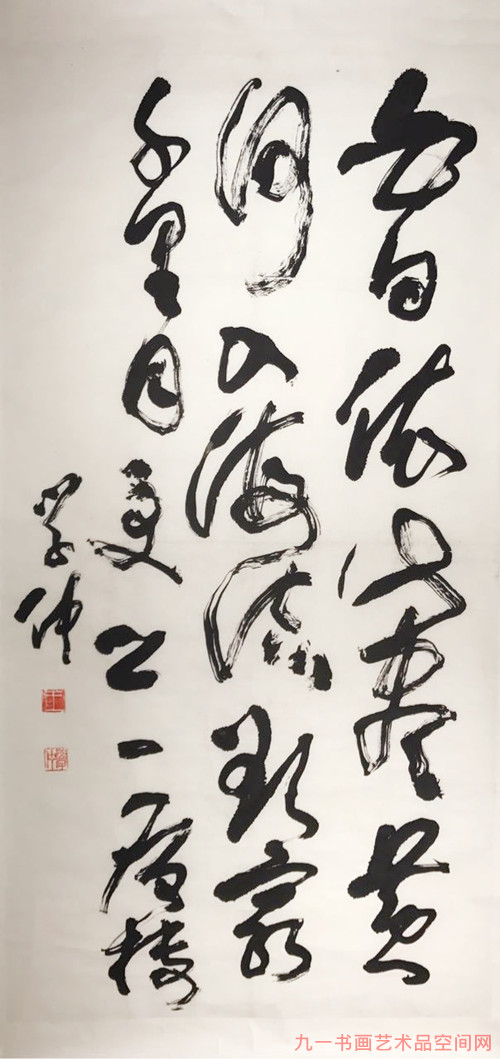 白日依山盡黄
河入海流欲窮
千里目更上一層樓
学仲
九一书画艺术品空间网